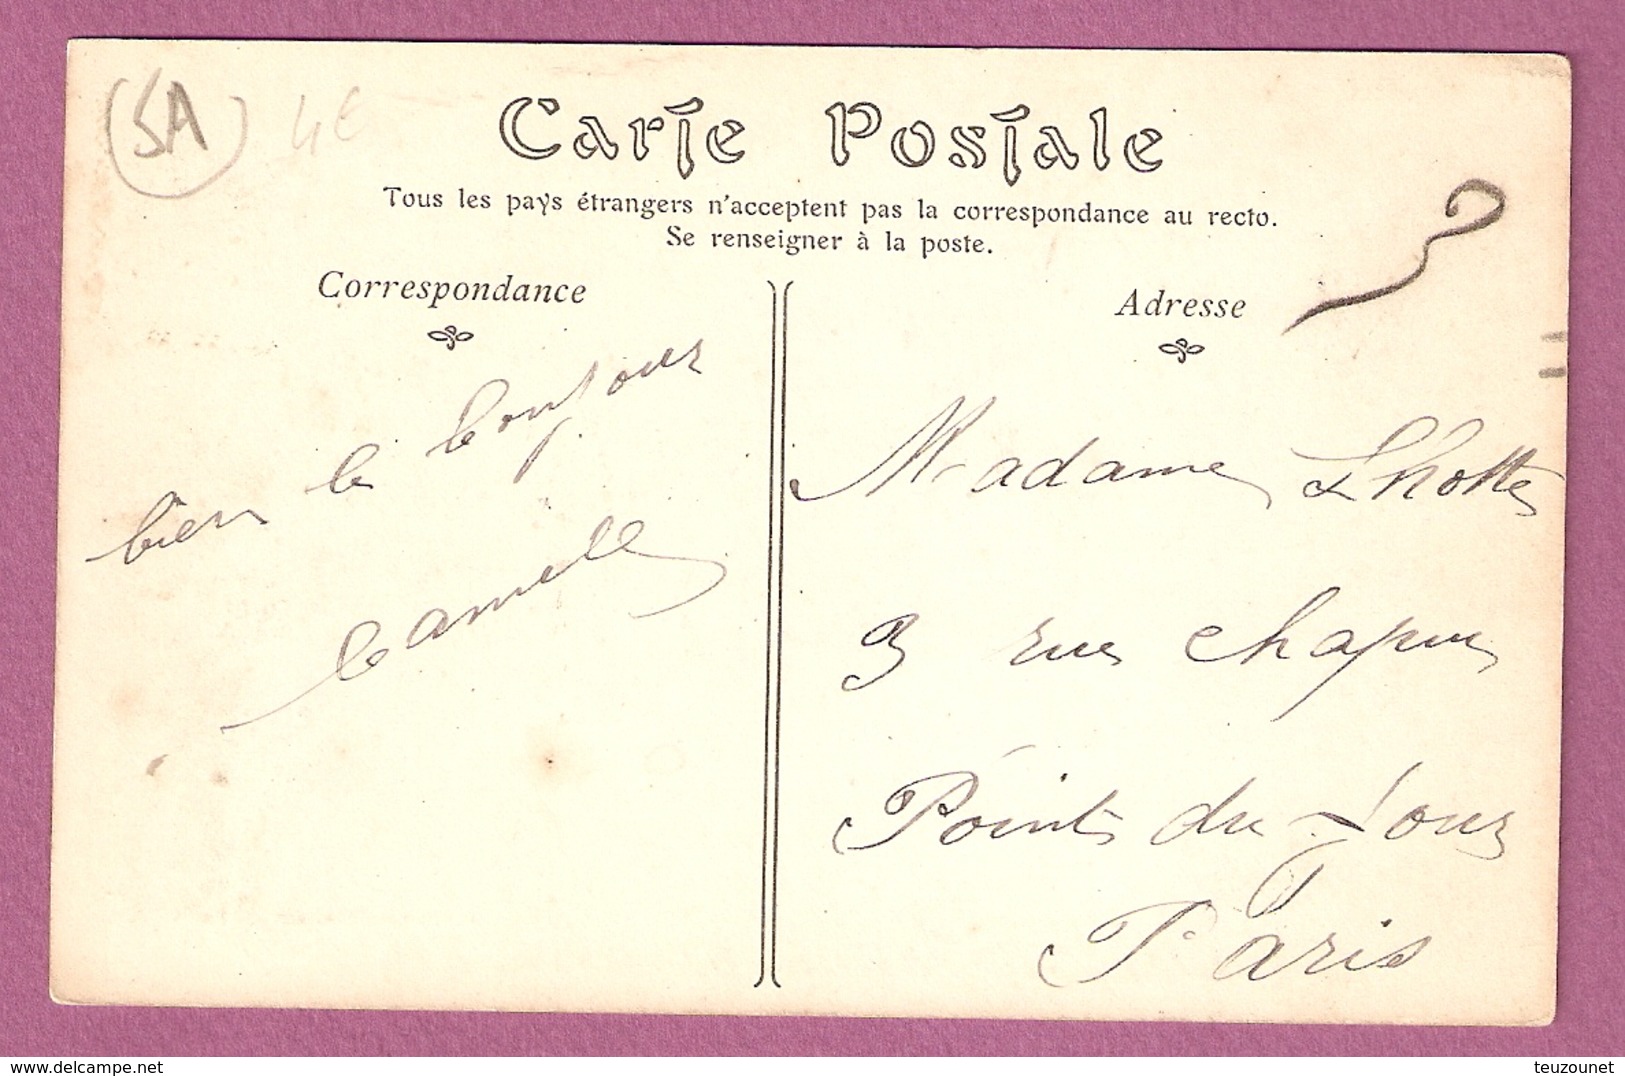 (5A) 4€
Carte Postale
Tous les pays étrangers n'acceptent pas la correspondance au recto.
Se renseigner à la poste.
Correspondance
bien le bonjour
Camille
Adresse
Madame Lhotte
3 rue
Point du Jour
Paris
www.delcampe.net
teuzounet